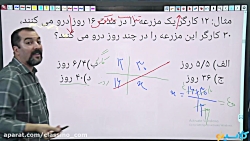 مثال: ۱۲ کارگر یک مزرعه را در مدت ۱۶ روز درو می کنند،
۳۰ کارگر این مزرعه را در چند روز درو می کنند؟
الف) ۵/۵ روز
ب) ۶/۴ روز
ج) ۳۶ روز
د) ۴۰ روز
۱۲
۳۰
۱۶
x
aparat.com/classino_com